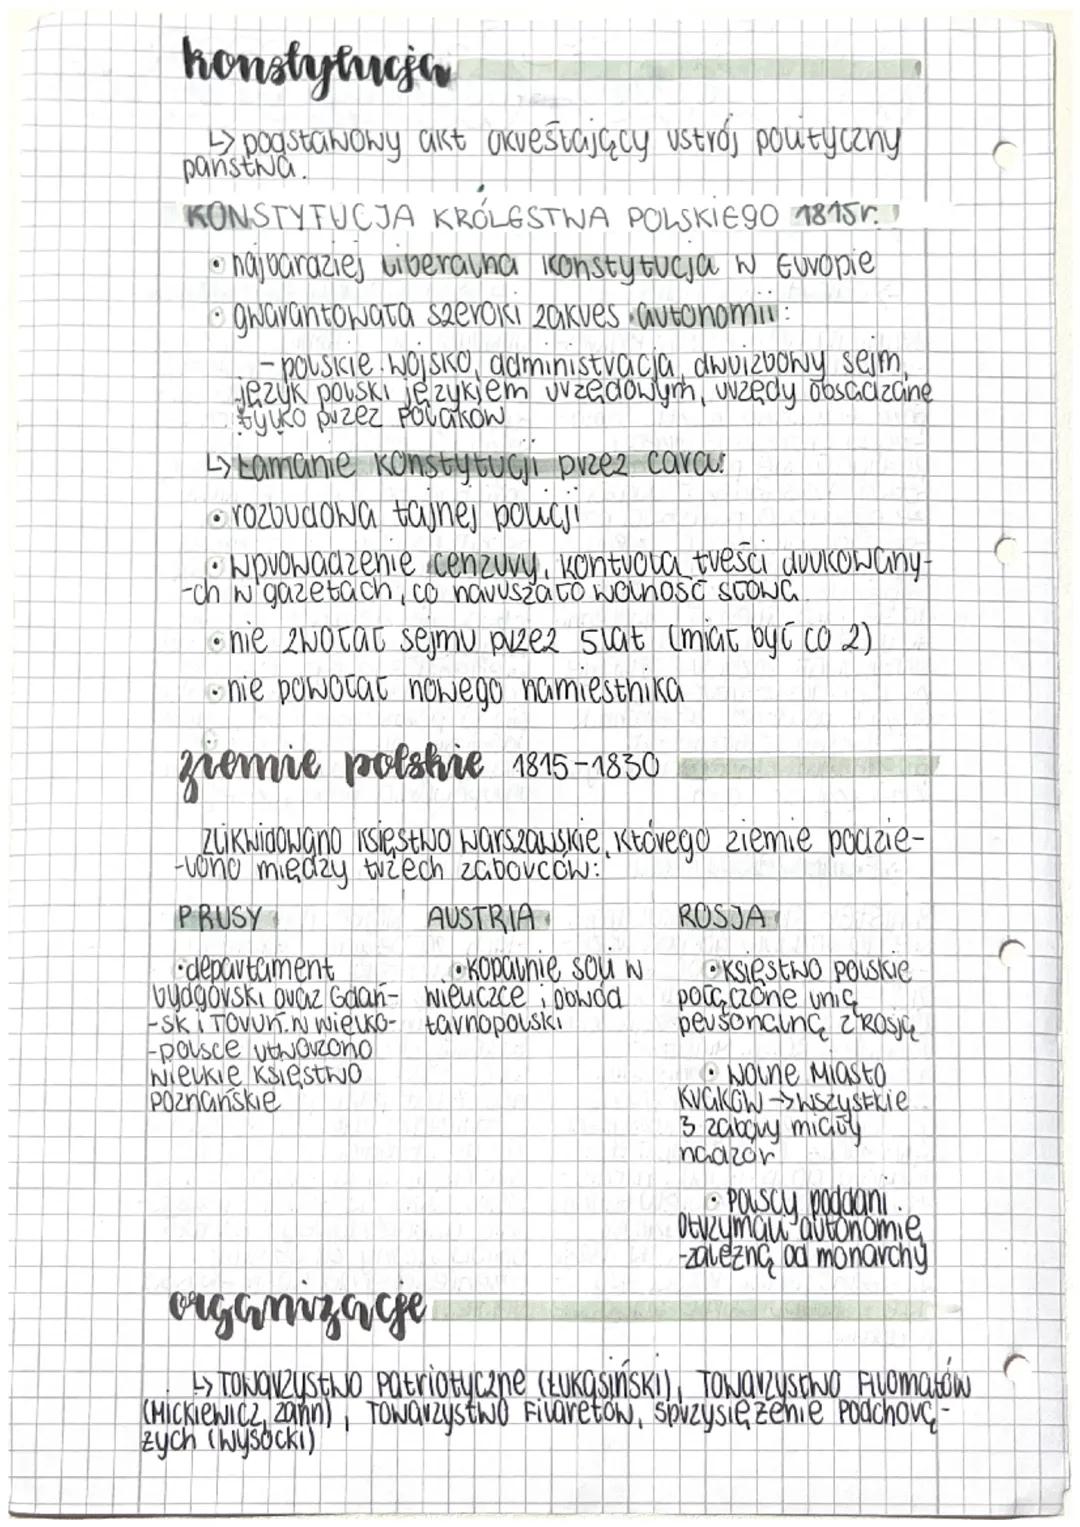 konstytucja
↳ podstawowy akt określający ustrój polityczny
państwa.
KONSTYTUCJA KRÓLESTWA POLSKIEGO 1815r.
• najbardziej liberalna konstytucja w Europie
• gwarantowała szeroki zakres autonomii:
- polskie wojsko, administracja, dwuizbowy sejm,
język polski językiem urzędowym, urzędy obsadzane
tylko przez Polaków
↳ Łamanie konstytucji przez cara:
• rozbudowa tajnej policji
• wprowadzenie cenzury, kontrola treści drukowany-
-ch w gazetach, co naruszało wolność słowa
• nie zwołał sejmu przez 5 lat (miał być co 2)
• nie powołał nowego namiestnika
ziemie polskie 1815-1830
Zlikwidowano Księstwo Warszawskie, którego ziemie podzie-
-lono między trzech zaborców:
PRUSY
• departament
bydgorski oraz Gdań-
-sk i Toruń. W Wielko-
-polsce utworzono
Wielkie Księstwo
Poznańskie
AUSTRIA
• kopalnie soli w
Wieliczce i obwód
tarnopolski
ROSJA
• Księstwo polskie
połączone unią
personalną z Rosją
• Wolne Miasto
Kraków → wszystkie
3 zabory miały
nadzór
• Polscy poddani
otrzymali autonomię
-zależną od monarchy
organizacje
↳ Towarzystwo Patriotyczne (Łukasiński), Towarzystwo Filomatów
(Mickiewicz, Zann), Towarzystwo Filaretów, Sprzysiężenie Podchorą-
żych (Wysocki)